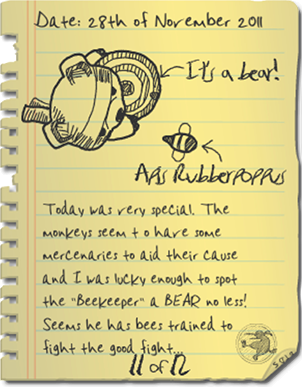 Date: 28th of November 2011
It's a bear!
Apis Rubberpoppus
Today was very special. The
monkeys seem to have some
mercenaries to aid their cause
and I was lucky enough to spot
the "Beekeeper" a BEAR no less!
Seems he has bees trained to
fight the good fight...
11 of 12